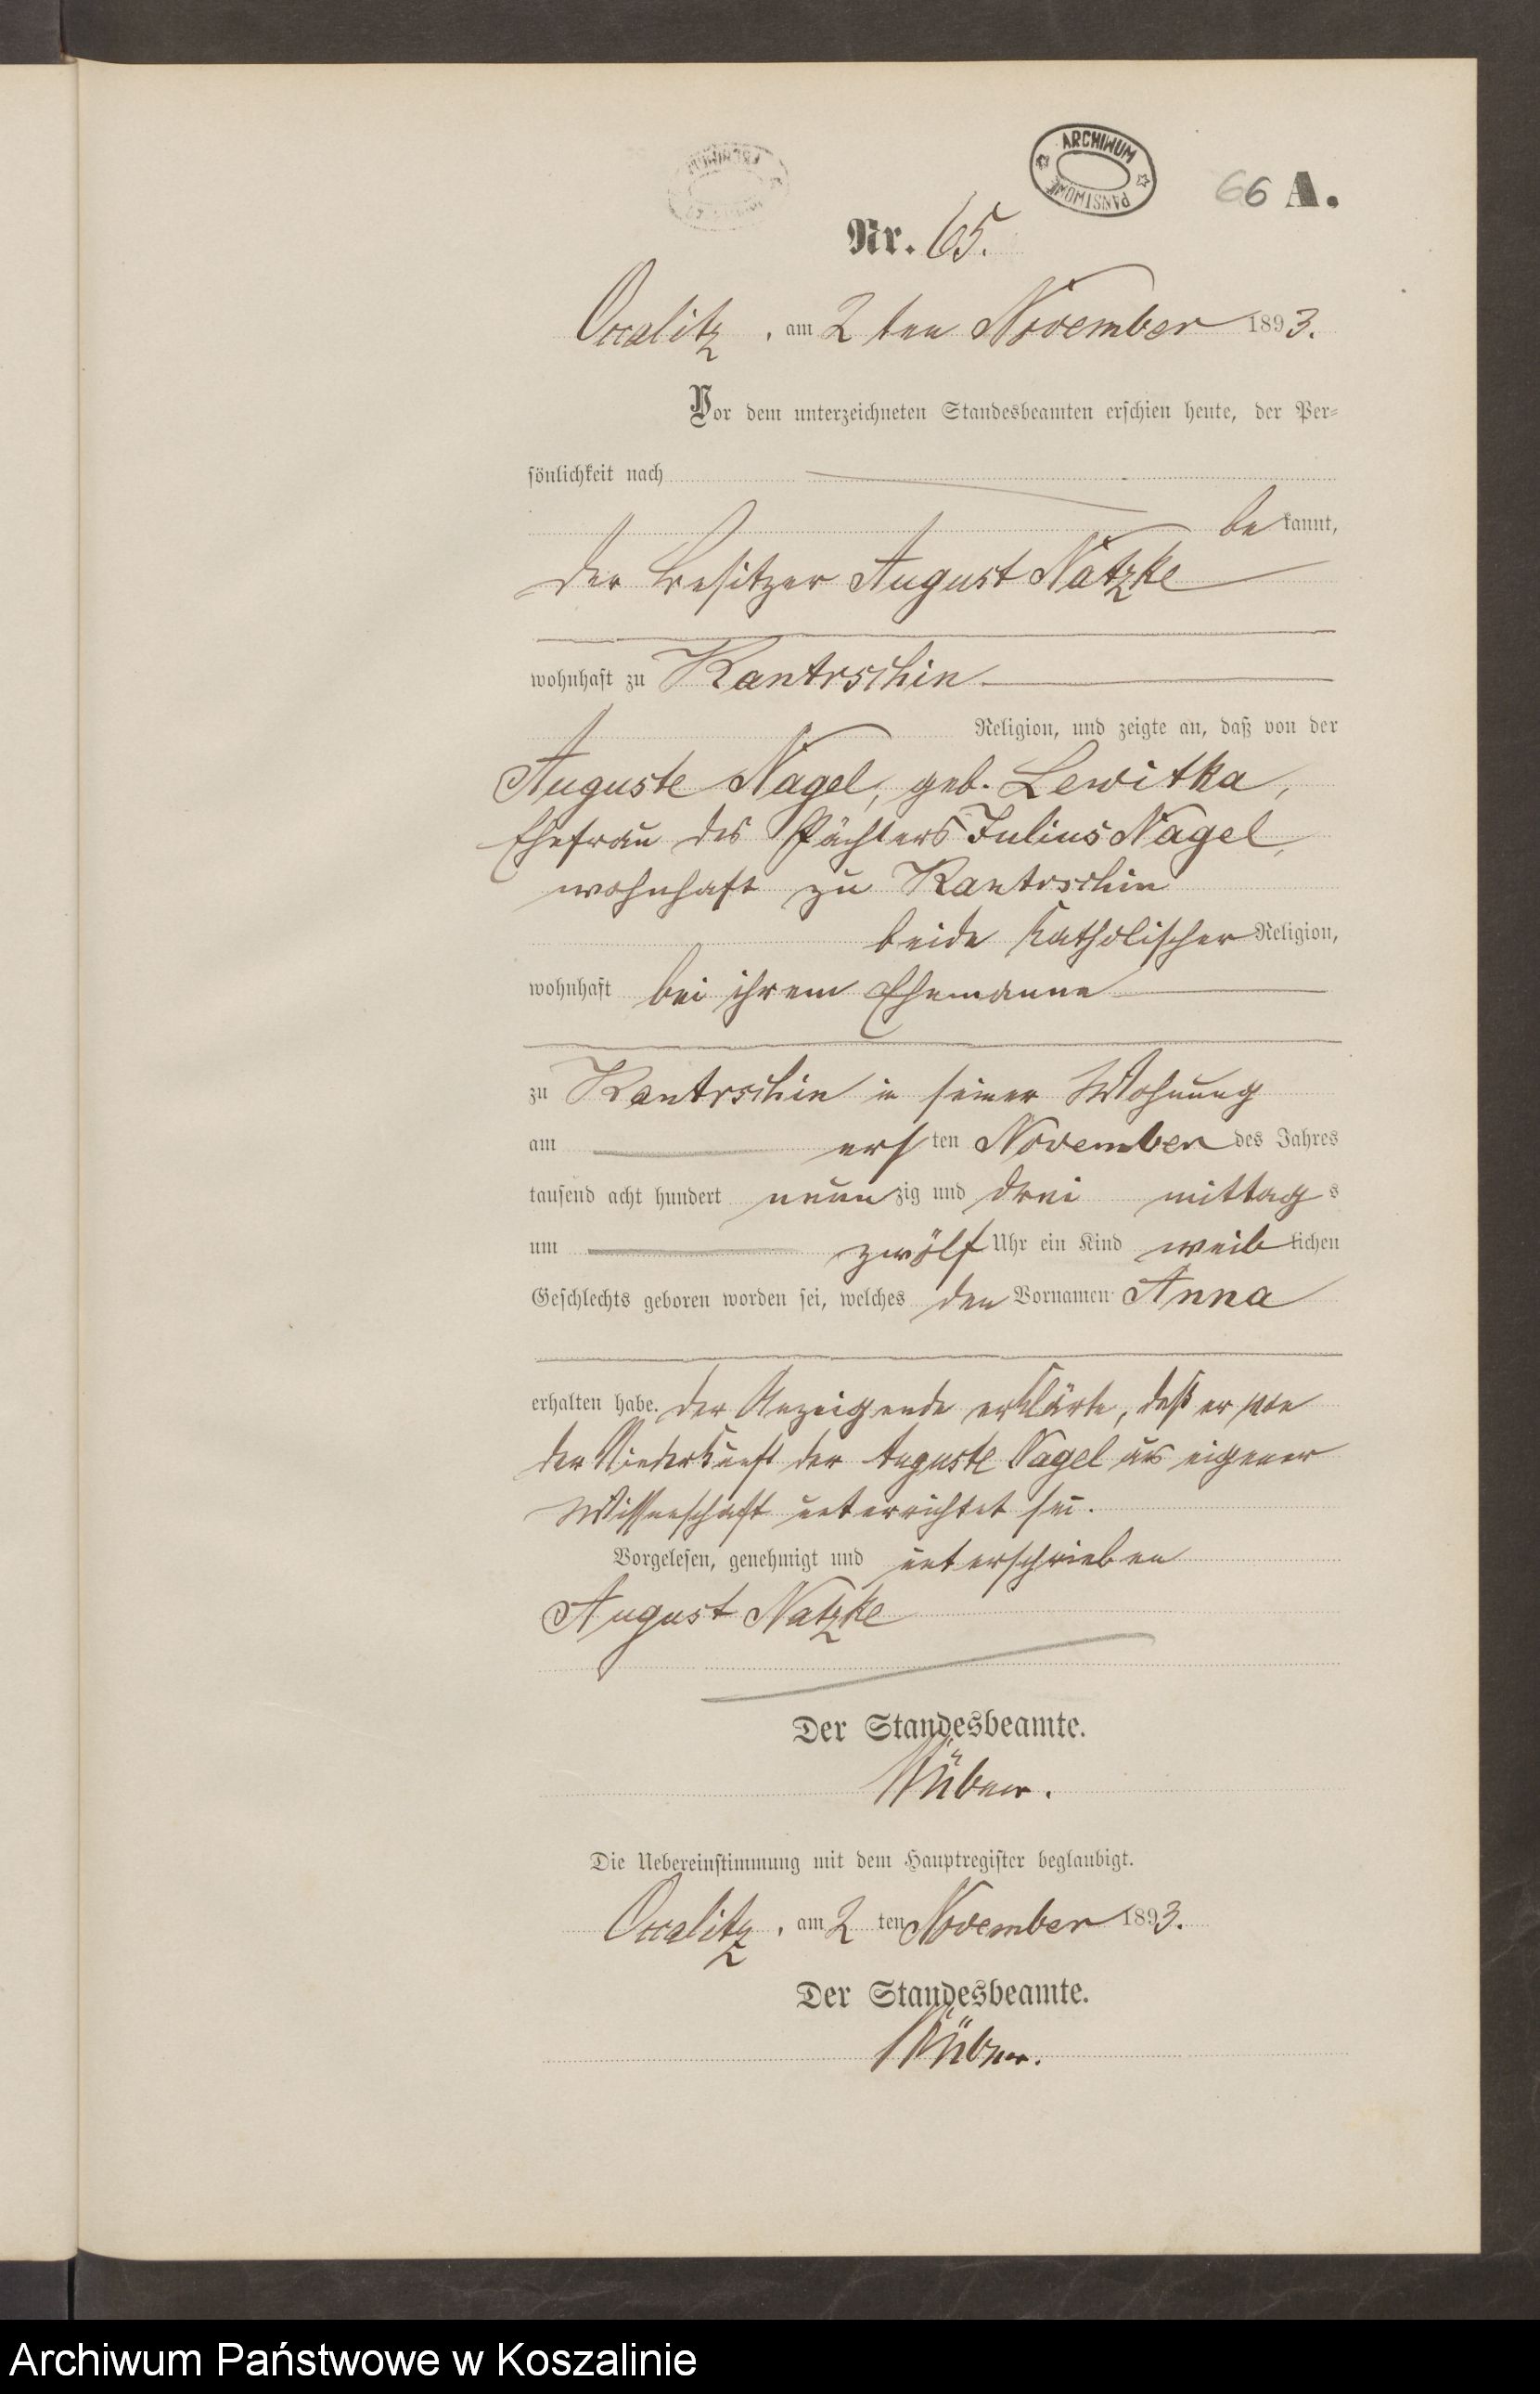 ARCHIWUM PAŃSTWOWE
66 A.
Nr. 65.
Occalitz, am 2 ten November 1893.
Vor dem unterzeichneten Standesbeamten erschien heute, der Per-
sönlichkeit nach
be kannt,
der Besitzer August Natzke
wohnhaft zu Kantrschin
Religion, und zeigte an, daß von der
Auguste Nagel, geb. Lewitka,
Ehefrau des Pächters Julius Nagel,
wohnhaft zu Kantrschin
beide katholischer Religion,
wohnhaft bei ihrem Ehemanne
zu Kantrschin in seiner Wohnung
am ersten November des Jahres
tausend acht hundert neunzig und drei mittags
um zwölf Uhr ein Kind weiblichen
Geschlechts geboren worden sei, welches den Vornamen Anna
erhalten habe. Der Anzeigende erklärte, daß er von
der Niederkunft der Auguste Nagel aus eigener
Wissenschaft unterrichtet sei.
Vorgelesen, genehmigt und unterschrieben
August Natzke
Der Standesbeamte.
Die Uebereinstimmung mit dem Hauptregister beglaubigt.
Occalitz, am 2 ten November 1893.
Der Standesbeamte.
Archiwum Państwowe w Koszalinie